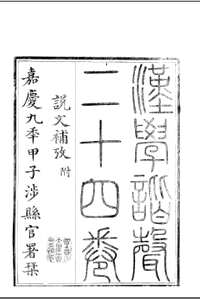 漢學諧聲
二十四卷
說文補攷 附
嘉慶九秊甲子涉縣官署栞